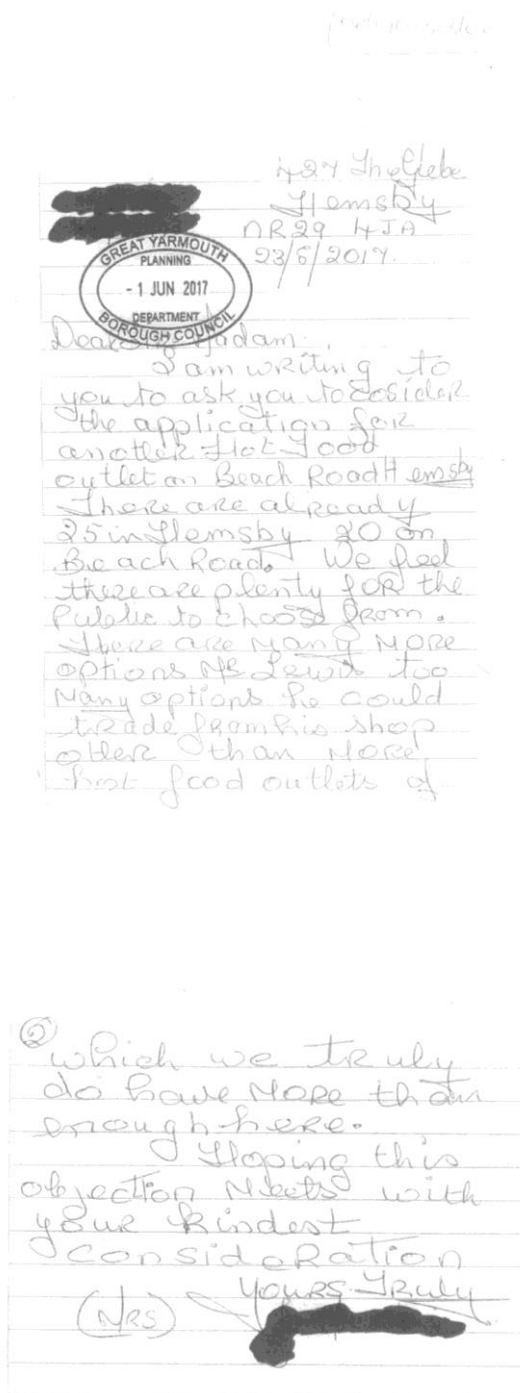 427 The Glebe
Hemsby
NR29 4JA
23/5/2017.
GREAT YARMOUTH
PLANNING
- 1 JUN 2017
DEPARTMENT
BOROUGH COUNCIL
Dear Sir Madam.,
I am writing to
you to ask you to cosider
the application for
another Hot Food
outlet on Beach Road Hemsby
There are already
25 in Hemsby 20 on
Beach Road. We feel
there are plenty for the
Public to choose from.
There are many more
options Mr Lewis too
many options he could
trade from his shop
other than more
hot food outlets of
②
which we truly
do have more than
enough here.
Hoping this
objection meets with
your kindest
consideration
Yours Truly
(Mrs)